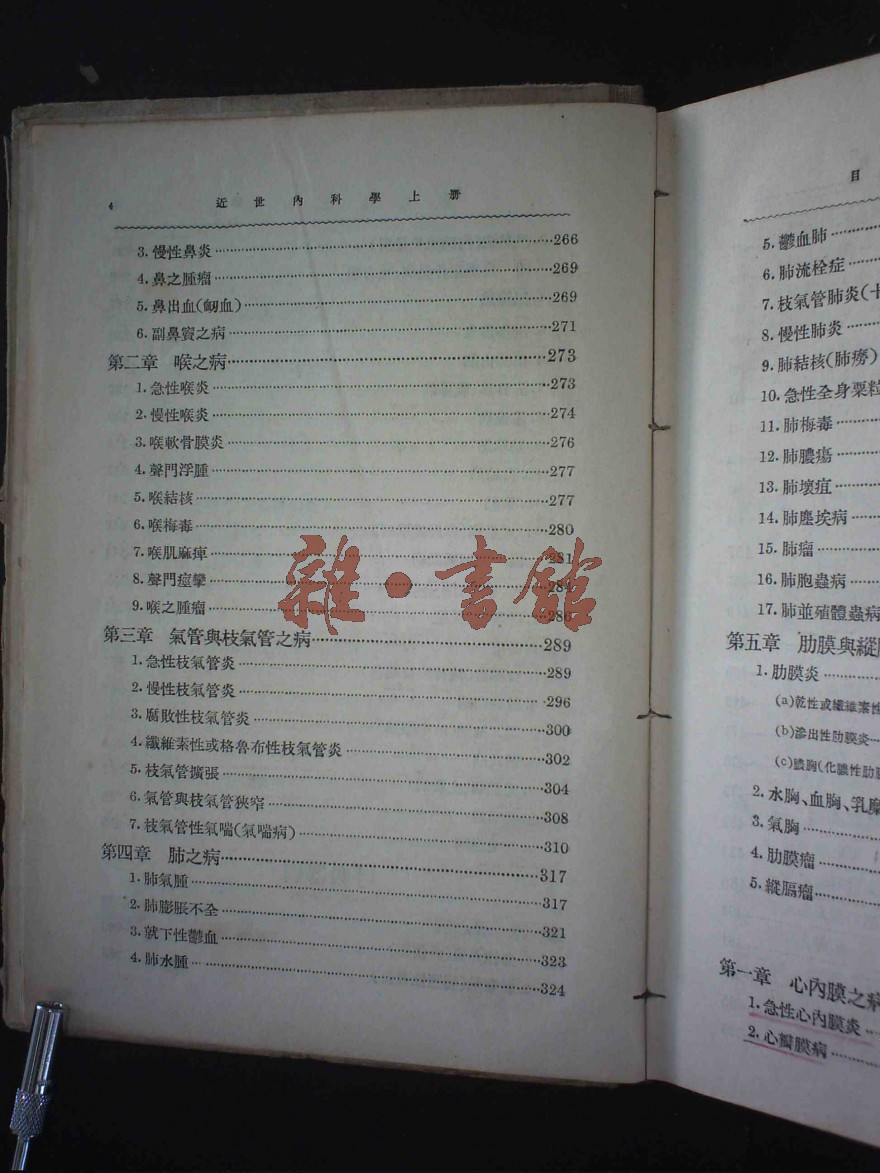 4 近世內科學上册
3. 慢性鼻炎……266
4. 鼻之腫瘤……269
5. 鼻出血(衂血)……269
6. 副鼻竇之病……271
第二章 喉之病……273
1. 急性喉炎……273
2. 慢性喉炎……274
3. 喉軟骨膜炎……276
4. 聲門浮腫……277
5. 喉結核……277
6. 喉梅毒……280
7. 喉肌麻痺……281
8. 聲門痙攣……284
9. 喉之腫瘤……286
第三章 氣管與枝氣管之病……289
1. 急性枝氣管炎……289
2. 慢性枝氣管炎……296
3. 腐敗性枝氣管炎……300
4. 纖維素性或格魯布性枝氣管炎……302
5. 枝氣管擴張……304
6. 氣管與枝氣管狹窄……308
7. 枝氣管性氣喘(氣喘病)……310
第四章 肺之病……317
1. 肺氣腫……317
2. 肺膨脹不全……321
3. 就下性鬱血……323
4. 肺水腫……324
雜·書館
目
5. 鬱血肺……
6. 肺流栓症……
7. 枝氣管肺炎(
8. 慢性肺炎……
9. 肺結核(肺癆)……
10. 急性全身粟粒
11. 肺梅毒……
12. 肺膿瘍……
13. 肺壞疽……
14. 肺塵埃病……
15. 肺瘤……
16. 肺胞蟲病……
17. 肺並殖體蟲病
第五章 肋膜與縱
1. 肋膜炎……
(a)乾性或纖維素性
(b)滲出性肋膜炎…
(c)膿胸(化膿性肋膜
2. 水胸、血胸、乳糜
3. 氣胸……
4. 肋膜瘤……
5. 縱膈瘤……
第一章 心內膜之病
1. 急性心內膜炎…
2. 心瓣膜病……